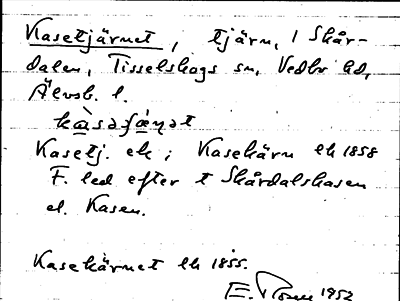 Kasetjärnet, tjärn, i Skår-
dalen, Tisselskogs sn, Vedbo hd,
Älvsb. l.
kàsəʃǽṇət
Kasetj. ek; Kasekärn ek 1858
F. led efter t Skårdalskasen
el. Kasen.
Kasekärnet ek 1855.
E. 1952